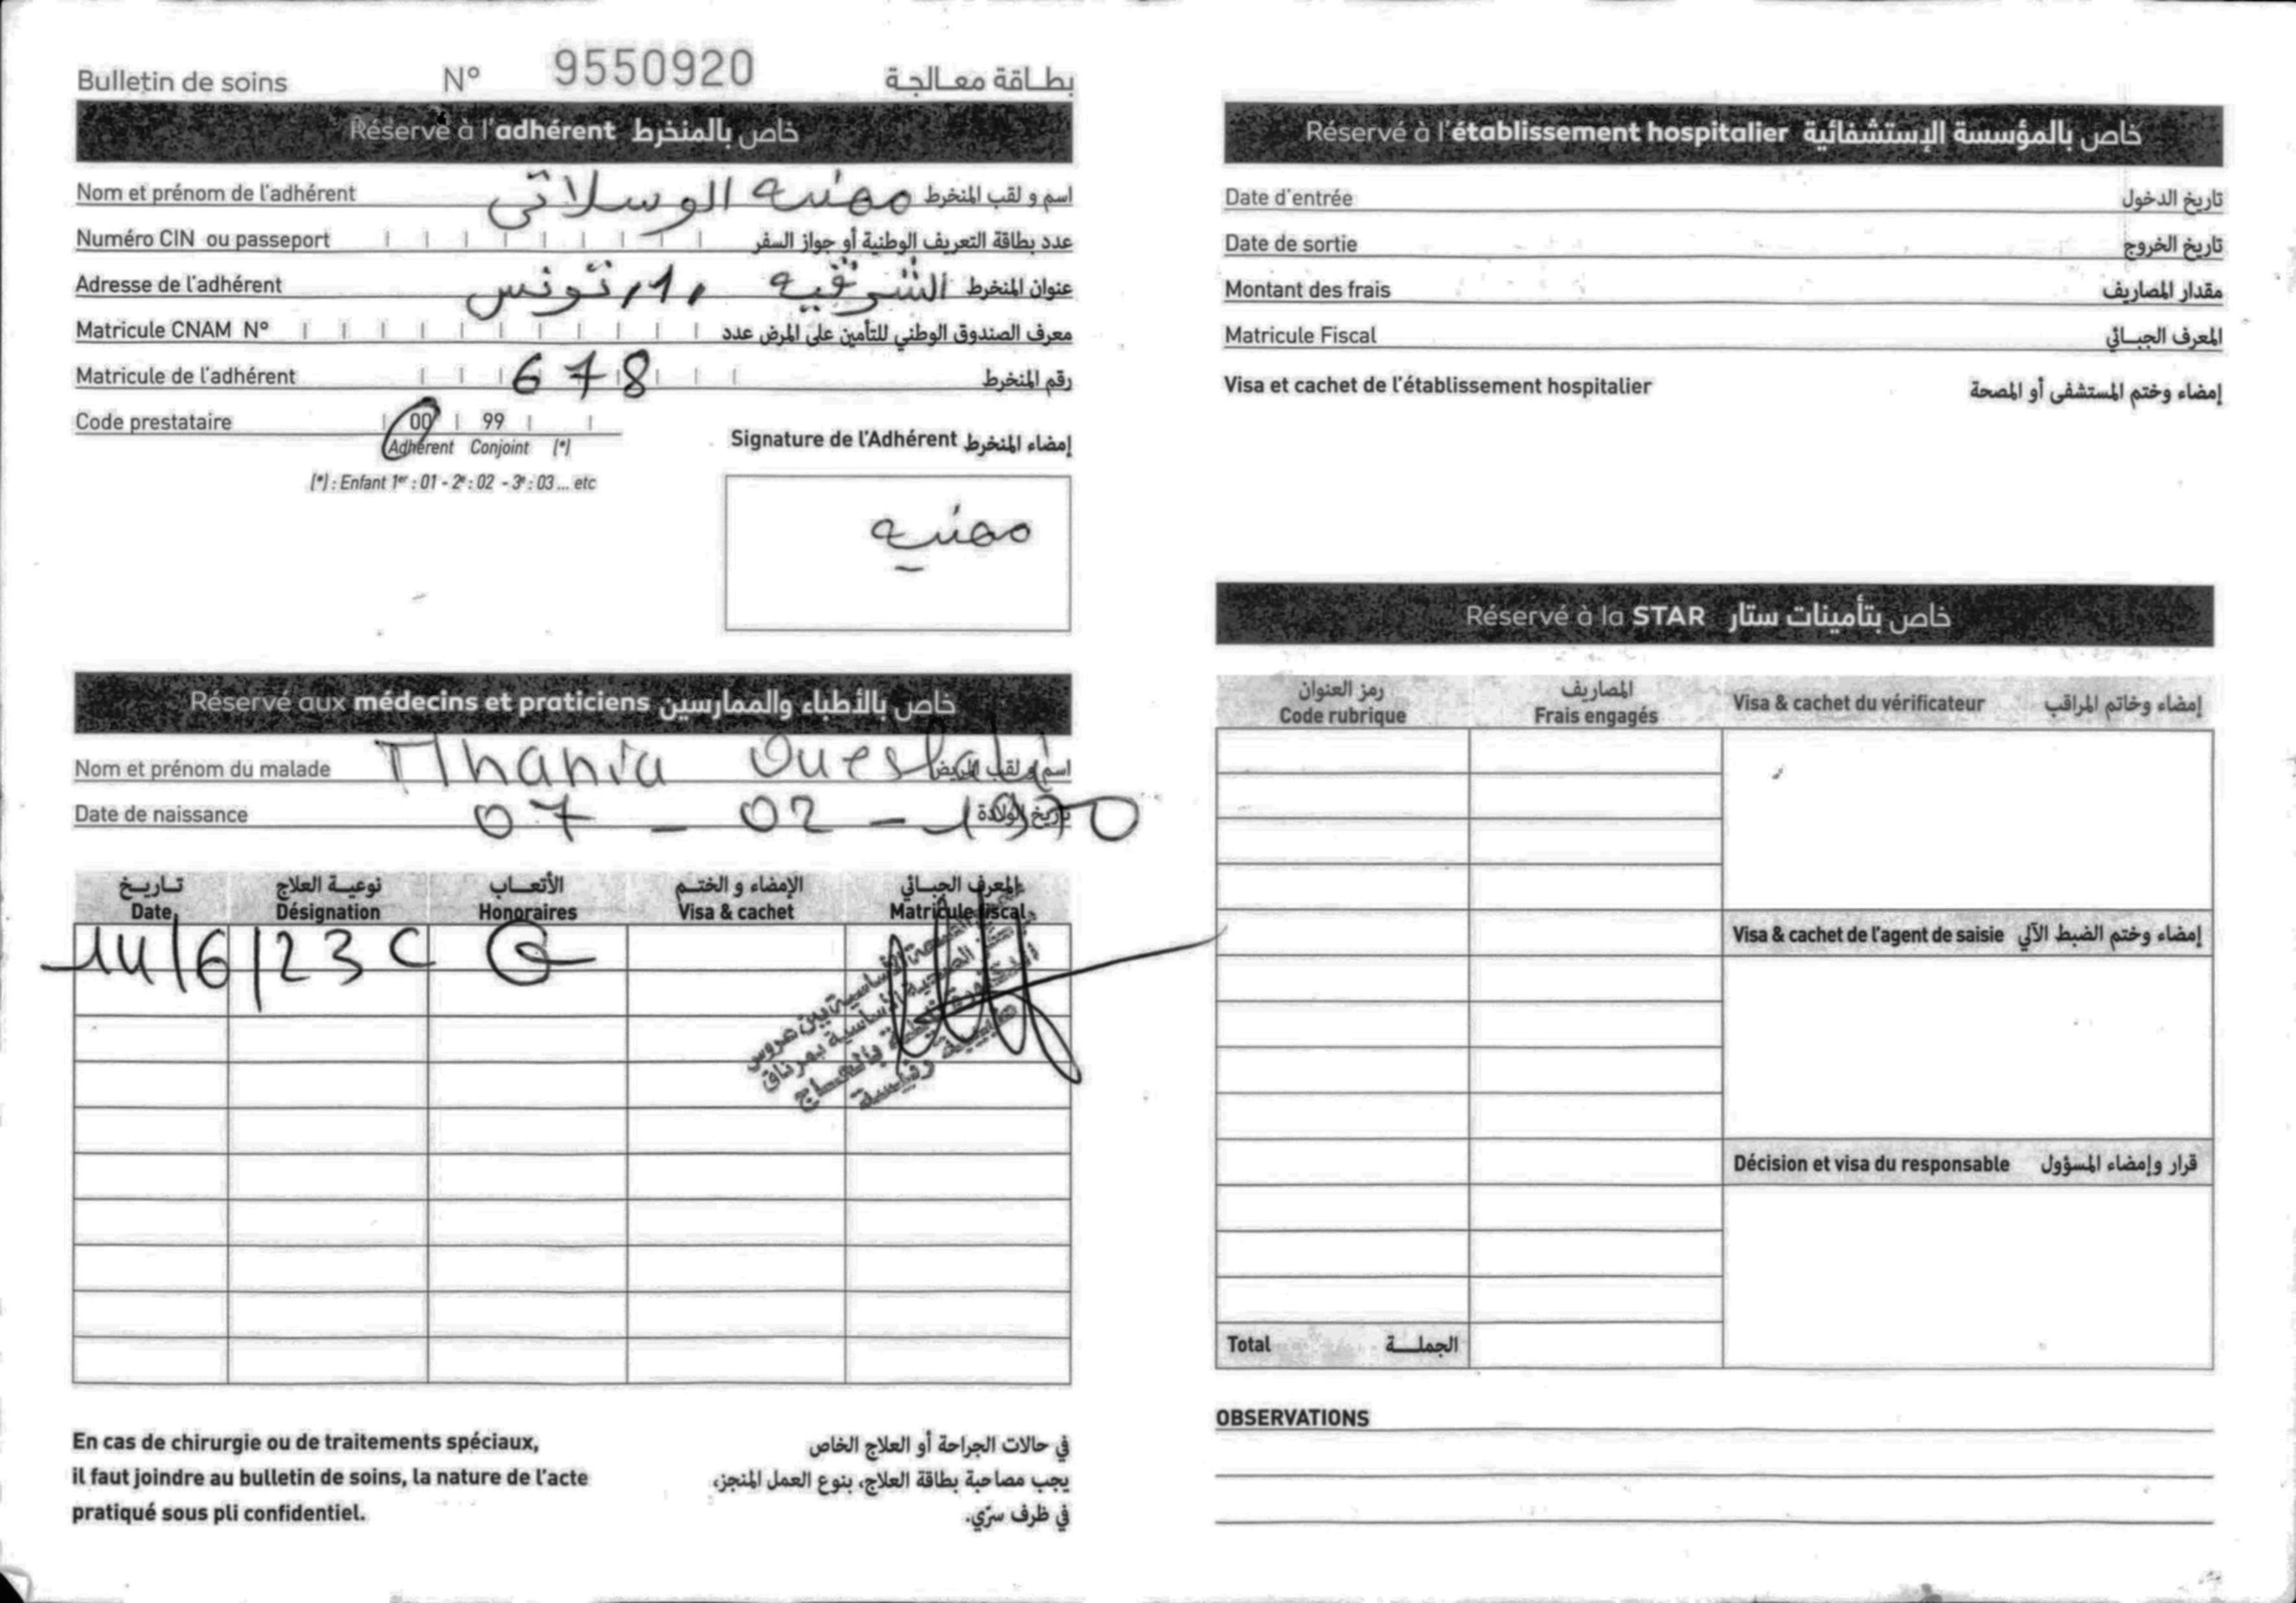 Bulletin de soins N° 9550920 بطاقة معالجة
Réservé à l'adhérent خاص بالمنخرط
Nom et prénom de l'adhérent مهنيه الوسلاتي اسم و لقب المنخرط
Numéro CIN ou passeport عدد بطاقة التعريف الوطنية أو جواز السفر
Adresse de l'adhérent الشرقيه 1, تونس عنوان المنخرط
Matricule CNAM N° معرف الصندوق الوطني للتأمين على المرض عدد
Matricule de l'adhérent 678 رقم المنخرط
Code prestataire 00 99
Adhérent Conjoint (*)
(*) : Enfant 1er : 01 - 2e : 02 - 3e : 03 ... etc
Signature de l'Adhérent إمضاء المنخرط
مهنيه
Réservé aux médecins et praticiens خاص بالأطباء والممارسين
Nom et prénom du malade Mhania Oueslati اسم و لقب المريض
Date de naissance 07 - 02 - 1970 تاريخ الولادة
تاريخ نوعية العلاج الأتعاب الإمضاء و الختم المعرف الجبائي
Date Désignation Honoraires Visa & cachet Matricule fiscal
14/6/23 C G
الصحية الأساسية بمرناق
En cas de chirurgie ou de traitements spéciaux,
il faut joindre au bulletin de soins, la nature de l'acte
pratiqué sous pli confidentiel.
في حالات الجراحة أو العلاج الخاص
يجب مصاحبة بطاقة العلاج، بنوع العمل المنجز،
في ظرف سرّي.
Réservé à l'établissement hospitalier خاص بالمؤسسة الإستشفائية
Date d'entrée تاريخ الدخول
Date de sortie تاريخ الخروج
Montant des frais مقدار المصاريف
Matricule Fiscal المعرف الجبائي
Visa et cachet de l'établissement hospitalier إمضاء وختم المستشفى أو المصحة
Réservé à la STAR خاص بتأمينات ستار
رمز العنوان المصاريف
Code rubrique Frais engagés Visa & cachet du vérificateur إمضاء وخاتم المراقب
Visa & cachet de l'agent de saisie إمضاء وختم الضبط الآلي
Décision et visa du responsable قرار وإمضاء المسؤول
Total الجملة
OBSERVATIONS